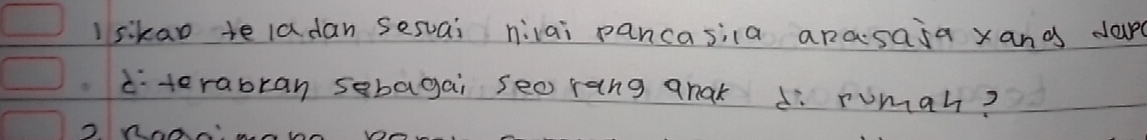 1 sikap teladan sesuai nilai pancasila apa saja yang dapa
diterabkan sebagai seorang anak di rumah?
2.